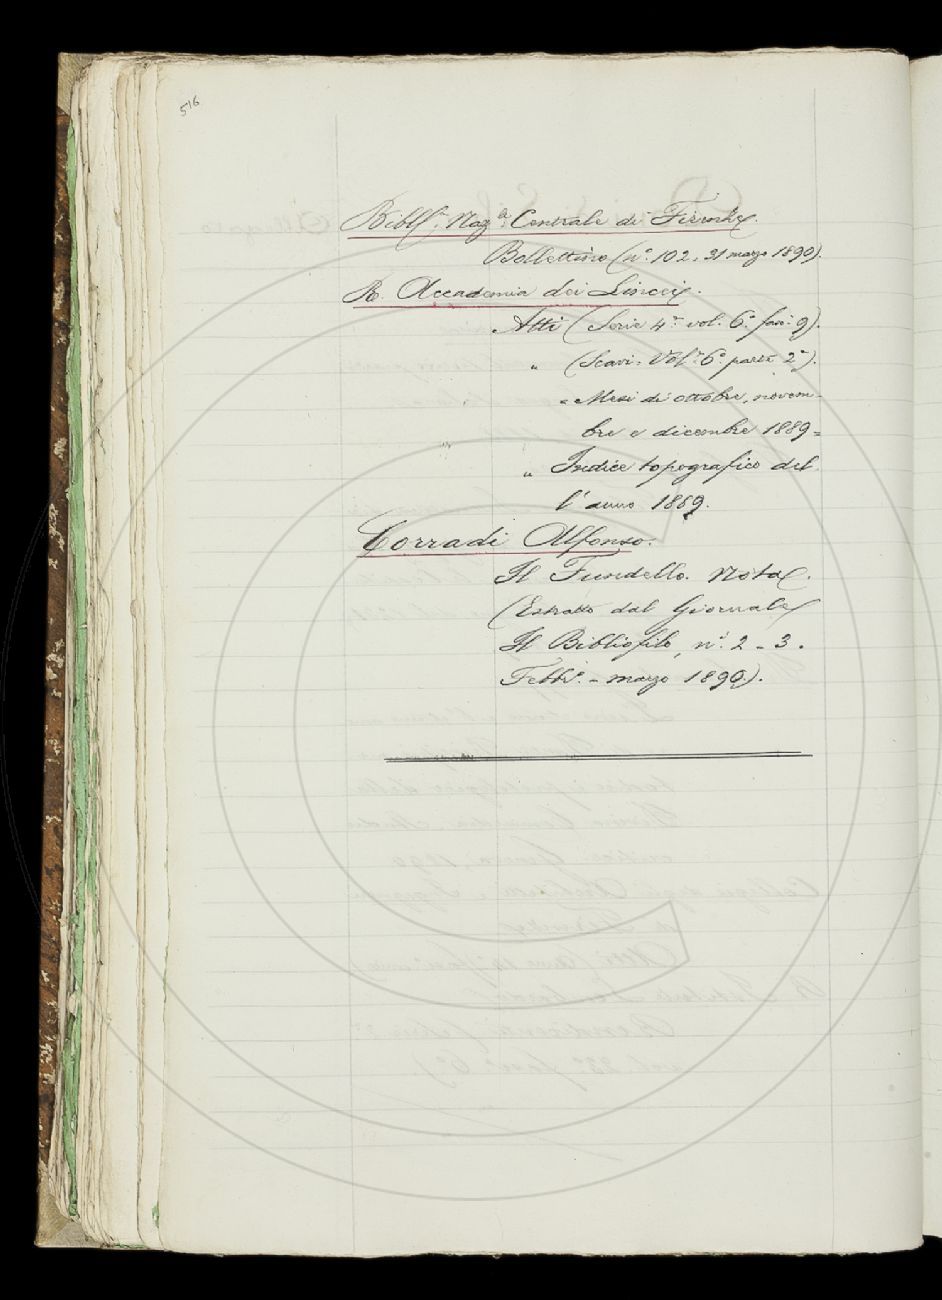 516
Bibl.ª Naz.le Centrale di Firenze.
Bollettino (n.º 102, 31 marzo 1890).
R. Accademia dei Lincei.
Atti (Serie 4ª vol. 6º fasc. 9).
" (Scavi. Vol. 6º parte 2ª).
" Mesi di ottobre, novem-
bre e dicembre 1889 =
" Indice topografico del-
l'anno 1889.
Corradi Alfonso.
Il Fundello. Nota.
(Estratto dal Giornale
Il Bibliofilo, n.i 2-3.
Febb.º - marzo 1890).